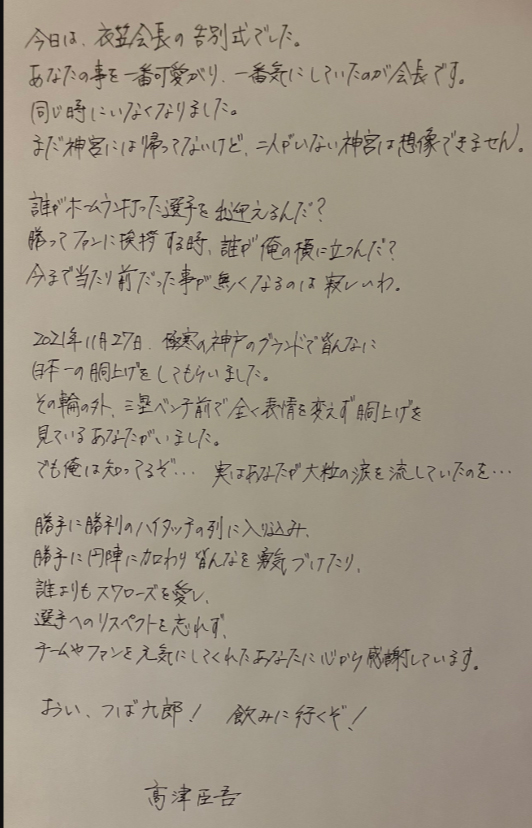 今日は、衣笠会長の告別式でした。
あなたの事を一番可愛がり、一番気にしていたのが会長です。
同じ時にいなくなりました。
まだ神宮には帰ってないけど、二人がいない神宮は想像できません。
誰がホームラン打った選手を出迎えるんだ？
勝ってファンに挨拶する時、誰が俺の横に立つんだ？
今まで当たり前だった事が無くなるのは寂しいわ。
2021年11月27日、極寒の神戸のグランドで皆んなに
日本一の胴上げをしてもらいました。
その輪の外、三塁ベンチ前で全く表情を変えず胴上げを
見ているあなたがいました。
でも俺は知ってるぞ… 実はあなたが大粒の涙を流していたのを…
勝手に勝利のハイタッチの列に入り込み、
勝手に円陣に加わり皆んなを勇気づけたり、
誰よりもスワローズを愛し、
選手へのリスペクトを忘れず、
チームやファンを元気にしてくれたあなたに心から感謝しています。
おい、つば九郎！ 飲みに行くぞ！
高津臣吾